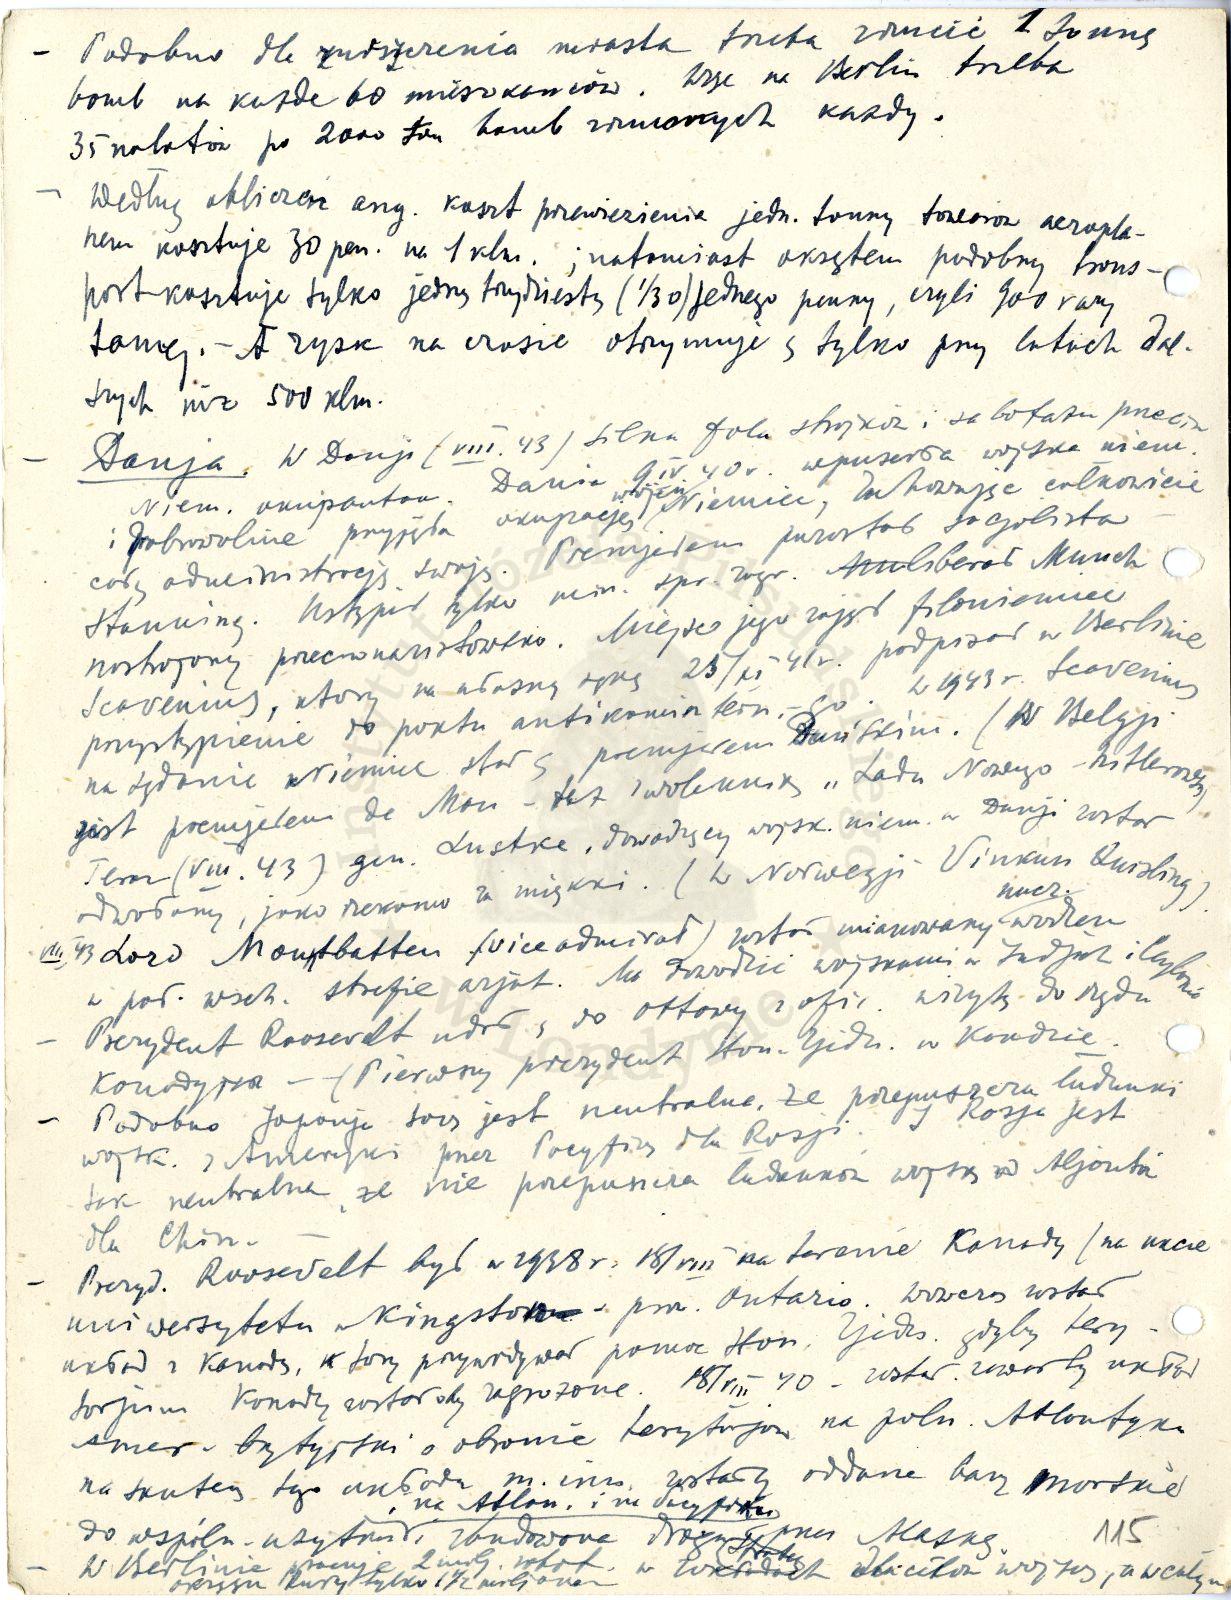 - Podobno dla zniszczenia miasta trzeba zrzucić 1 tonnę
bomb na każde 60 mieszkańców. Więc na Berlin trzeba
35 nalotów po 2000 ton bomb zrzuconych każdy.
- Według obliczeń ang. koszt przewiezienia jedn. tonny towarów aeropla-
nem kosztuje 30 pen. na 1 klm. ; natomiast okrętem podobny trans-
port kosztuje tylko jedną trzydziestą (1/30) jednego penny, czyli 900 razy
taniej. - A zysk na czasie otrzymuje się tylko przy lotach dal-
szych niż 500 klm.
- Danja. W Danji (VIII. 43) silna fala strajków i sabotażu przeciw
niem. okupantom. Dania 9 IV 40 r. wpuściła wojska niem.
i dobrowolnie przyjęła okupację wojsk Niemiec, zachowując całkowicie
całą administrację swoją. Premjerem pozostał socjalista
Stauning. Ustąpił tylko min. spr. zagr. liberał Munch
nastrojony przeciwnazistowsko. Miejsce jego zajął filoniemiec
Scavenius, który na własną rękę 25/XI 41 r. podpisał w Berlinie
przystąpienie do paktu antikomintern.-go. W 1943 r. Scavenius
na żądanie Niemiec stał się premjerem Duńskim. (W Belgji
jest premjerem de Man - też zwolennik "Ładu Nowego - hitlerowsk.)
Teraz (VIII. 43) gen. Lustke, dowodzący wojsk. niem. w Danji został
odwołany, jako rzekomo za miękki. (W Norwegji Vinkun Quisling)
VIII. 43 Lord Mountbatten (viceadmirał) został mianowany nacz. wodzem
w poł. wsch. strefie azjat. Ma dowodzić wojskami w Indjach i Ceylonie
- Prezydent Roosevelt udał się do Ottawy z ofic. wizytą do rządu
Kanadyjsk - (Pierwszy prezydent Stan. Zjedn. w Kanadzie.
- Podobno Japonja tak jest neutralna, że przepuszcza ładunki
wojsk. z Ameryki przez Pacyfik dla Rosji. I Rosja jest
tak neutralna, że nie przepuszcza ładunków wojsk. od Aljantów
dla Chin. -
- Prezyd. Roosevelt był w 1938 r. 18/VIII na terenie Kanady (na akcie
uniwersytetu w Kingston - prow. Ontario. Wówczas został
układ z Kanadą, który przewidywał pomoc Stan. Zjedn. gdyby tery-
torjum Kanady zostało by zagrożone. 18/VIII 40 - został zawarty układ
amer.-brytyjski o obronie terytorjów na półn. Atlantyku
na skutek tego układu m. inn. zostały oddane bazy morskie
na Atlan. i na Pacyfiku
do wspóln. użytku i zbudowana droga przez Alaskę.
115
- W Berlinie pracuje 2 milj. robot. w zakładach dla celów wojsk., a w całym
okręgu Ruhry tylko 1 1/2 miljona